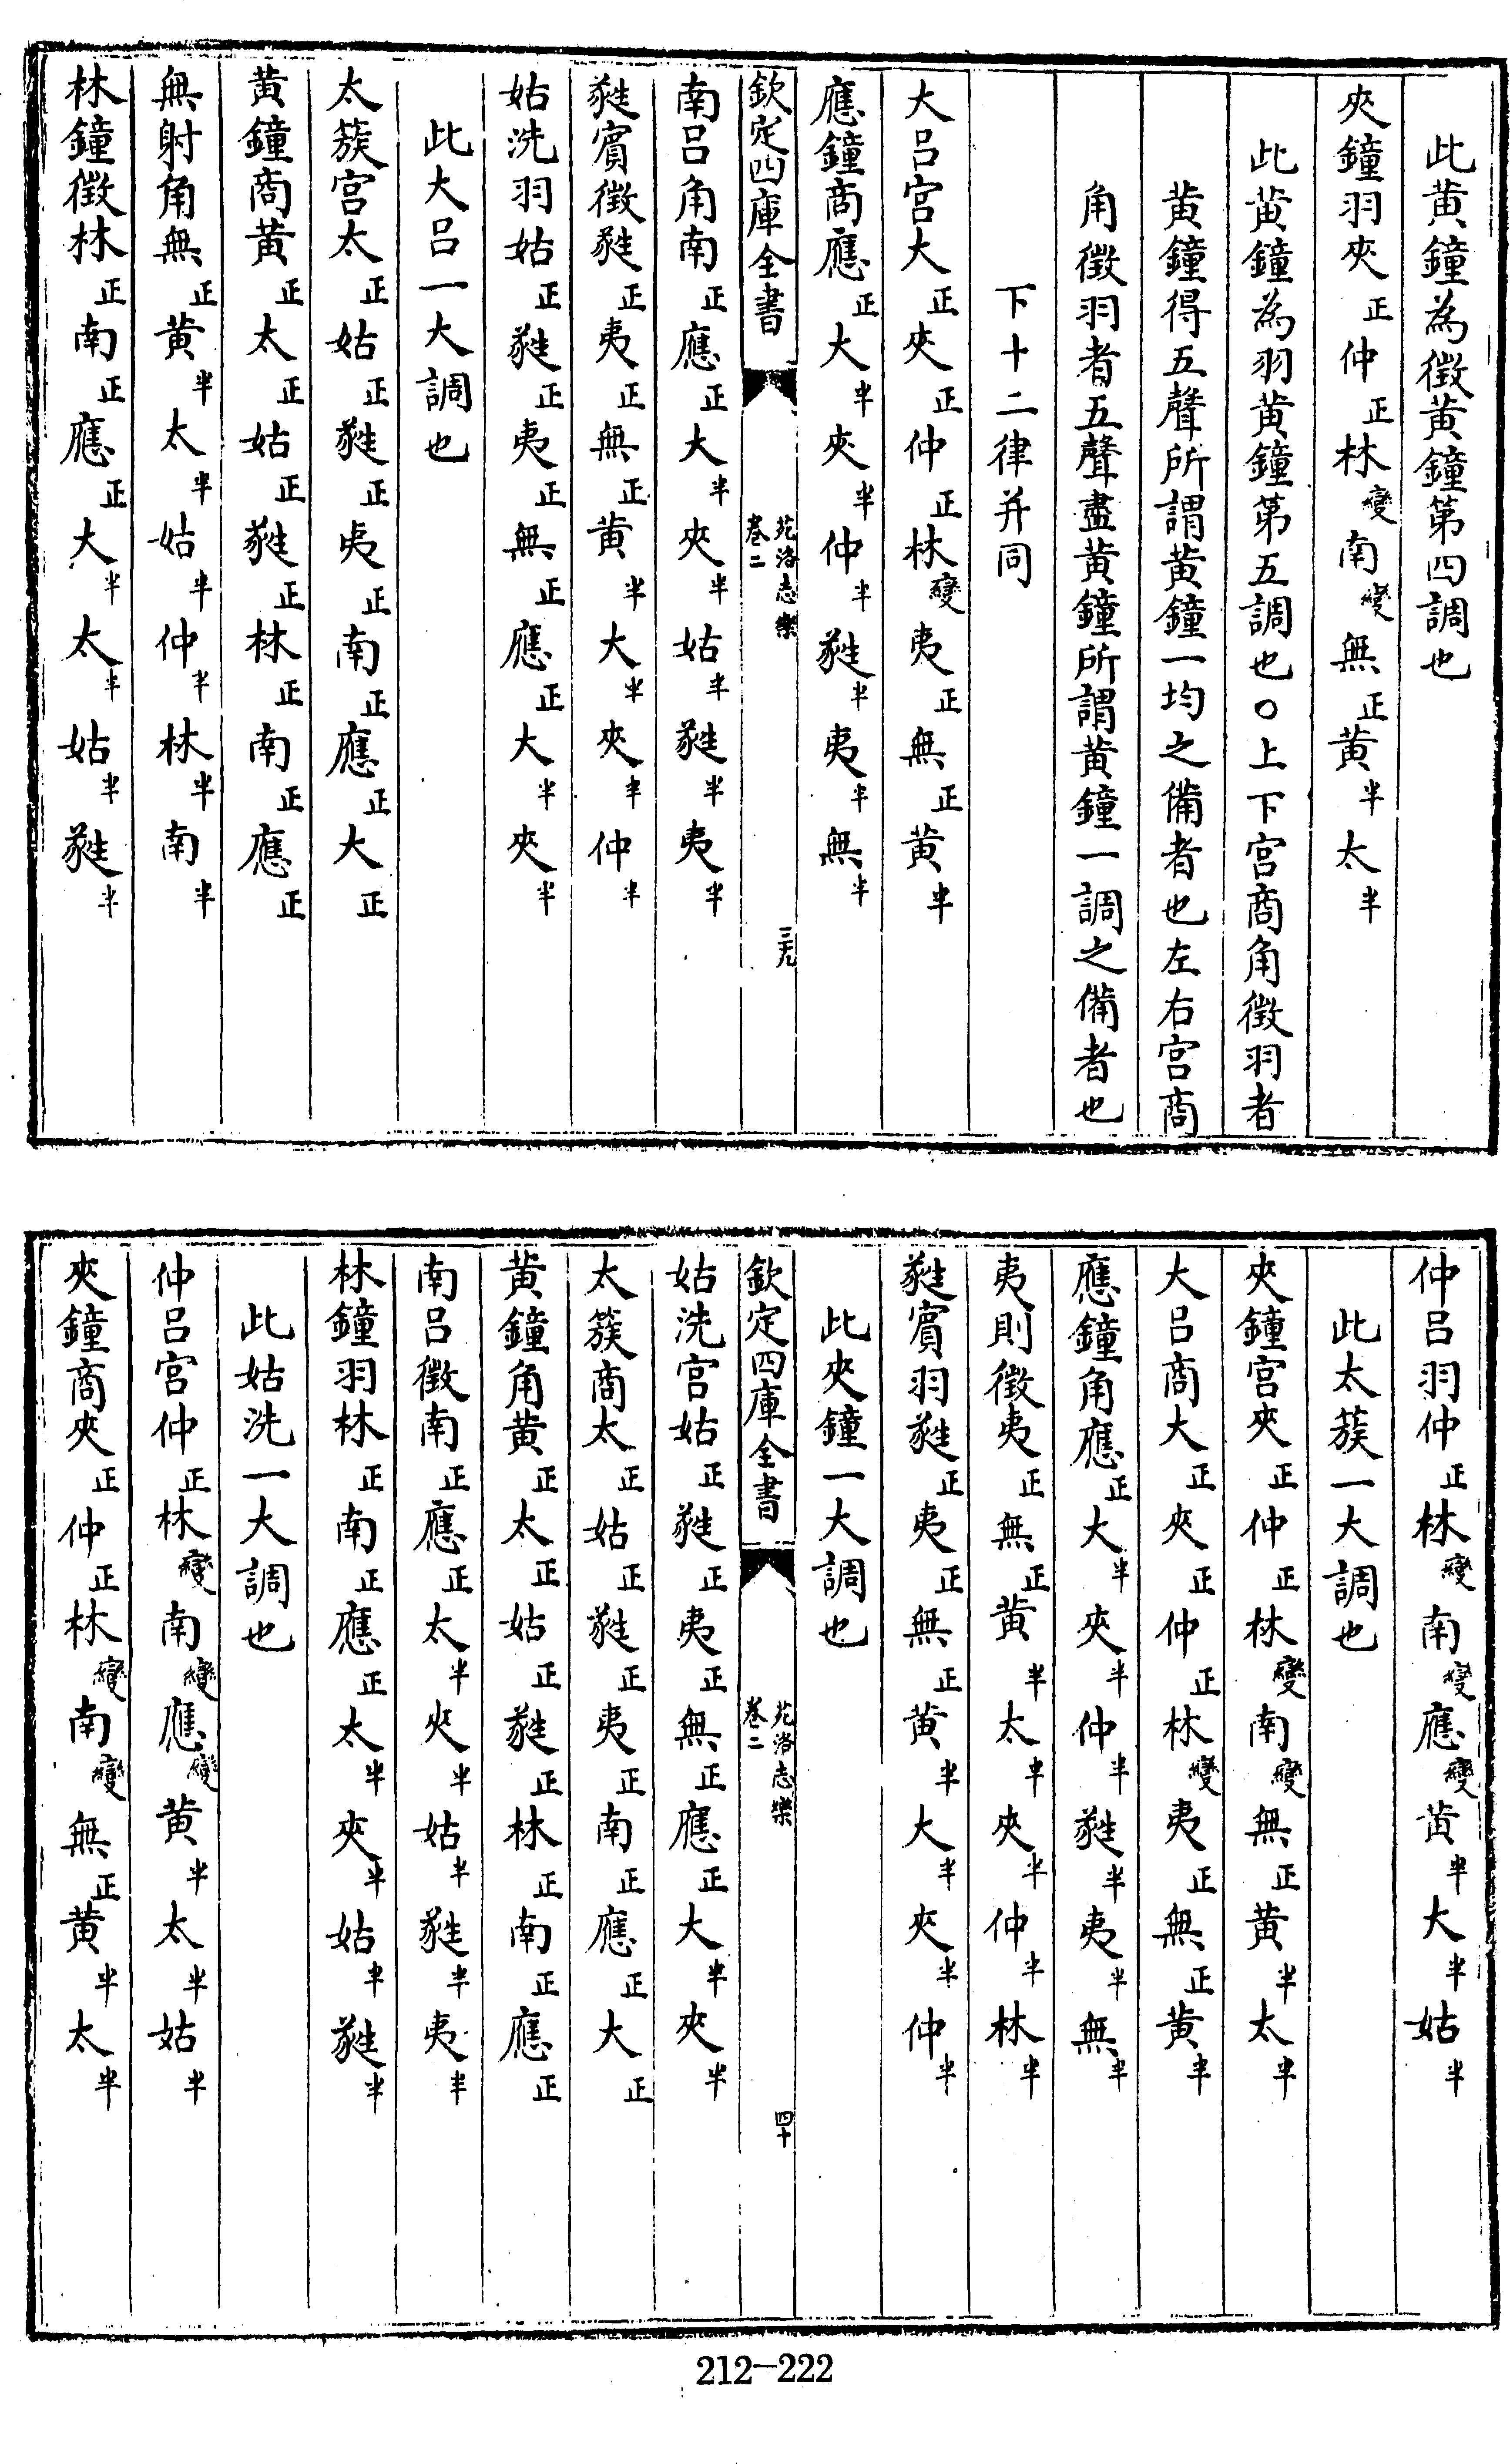 此黄鐘為徵黄鐘第四調也
夾鐘羽夾正仲正林變南變無正黄半太半
此黄鐘為羽黄鐘第五調也○上下宫商角徵羽者
黄鐘得五聲所謂黄鐘一均之備者也左右宫商
角徵羽者五聲盡黄鐘所謂黄鐘一調之備者也
下十二律并同
大呂宫大正夾正仲正林變夷正無正黄半
應鐘商應正大半夾半仲半蕤半夷半無半
欽定四庫全書
苑洛志樂
卷二
三十九
南呂角南正應正大半夾半姑半蕤半夷半
蕤賓徵蕤正夷正無正黄半大半夾半仲半
姑洗羽姑正蕤正夷正無正應正大半夾半
此大呂一大調也
太簇宫太正姑正蕤正夷正南正應正大正
黄鐘商黄正太正姑正蕤正林正南正應正
無射角無正黄半太半姑半仲半林半南半
林鐘徵林正南正應正大半太半姑半蕤半
仲呂羽仲正林變南變應變黄半大半姑半
此太簇一大調也
夾鐘宫夾正仲正林變南變無正黄半太半
大呂商大正夾正仲正林變夷正無正黄半
應鐘角應正大半夾半仲半蕤半夷半無半
夷則徵夷正無正黄半太半夾半仲半林半
蕤賓羽蕤正夷正無正黄半大半夾半仲半
此夾鐘一大調也
欽定四庫全書
苑洛志樂
卷二
四十
姑洗宫姑正蕤正夷正無正應正大半夾半
太簇商太正姑正蕤正夷正南正應正大正
黄鐘角黄正太正姑正蕤正林正南正應正
南呂徵南正應正太半夾半姑半蕤半夷半
林鐘羽林正南正應正太半夾半姑半蕤半
此姑洗一大調也
仲呂宫仲正林變南變應變黄半太半姑半
夾鐘商夾正仲正林變南變無正黄半太半
212-222